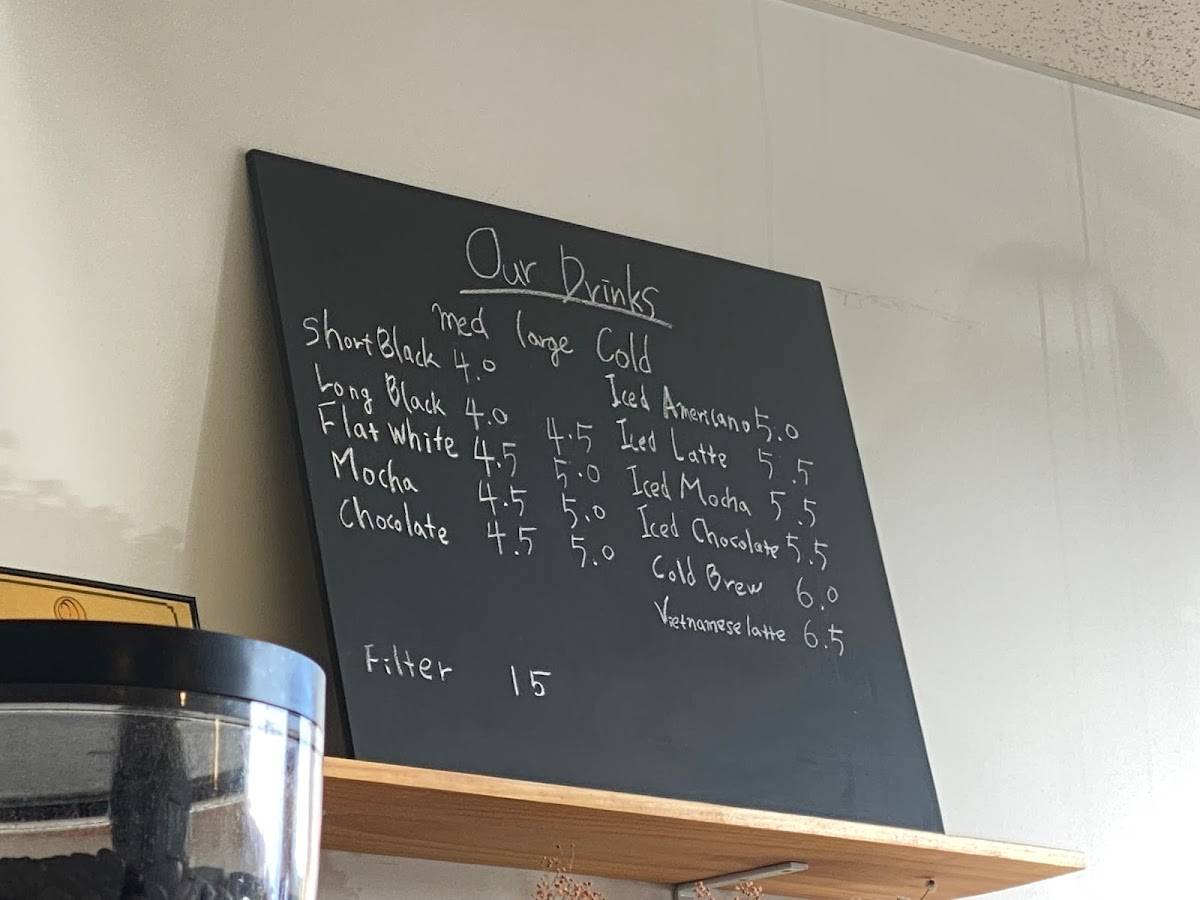 Our Drinks
med large Cold
Short Black 4.0 Iced Americano 5.0
Long Black 4.0 4.5 Iced Latte 5.5
Flat White 4.5 5.0 Iced Mocha 5.5
Mocha 4.5 5.0 Iced Chocolate 5.5
Chocolate 4.5 5.0 Cold Brew 6.0
Vietnamese latte 6.5
Filter 15